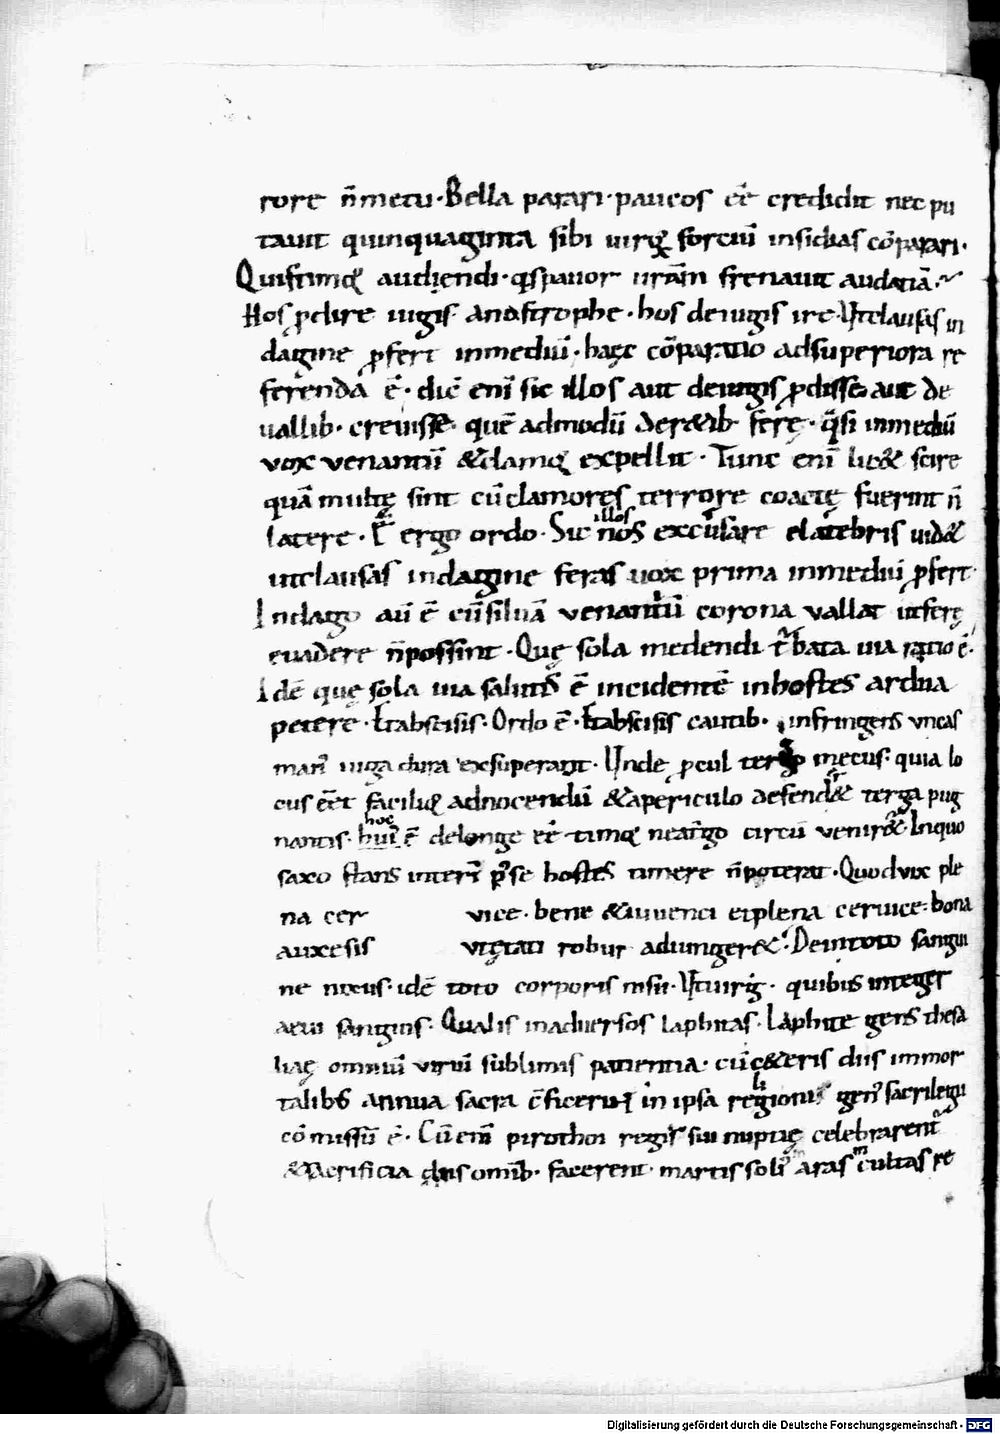 rore n̄ metu · Bella parari · paucos ee͂ credidit nec pu
tauit quinquaginta sibi uirorꝝ fortiū insidias cōparari ·
Quis timorqꝫ audiendi · qͥs pauor urām frenauit audatiā ·
Hos ꝓdire iugis anastrophe · hos de iugis ire · Vt clausas in
dagine ꝓfert in mediū · haec cōparatio ad superiora re
ferenda ē · dic̄ eni͂ sic illos aut de iugis ꝓdisse aut de
uallib· creuisse · quē admodū de r&ib· ferę · q̄si in mediū
uox uenantiū &clamorqꝫ expellit · Tunc eni͂ lic& scire
quā multę sint cū clamores terrore coactę fuerint n̄
latere · Ē ergo ordo · Sic illos nos excusare e latebris uid&
ut clausas indagine feras uox prima in mediū ꝓfert ·
Indago au͂ ē cū siluā uenantiū corona uallat ut ferę
euadere n̄ possint · Quę sola medendi turbata uia ratio ē ·
Idē quę sola uia salutis ē incidentē in hostes ardua
petere · Et abscisis · Ordo ē · Et abscisis cautib· infringens uncas
man᷒ iuga dura exsuperant · Unde ꝓcul tergo metus · quia lo
cus eēt faciliorqꝫ ad nocendū & a periculo defend&et terga pug
nantis · hoc huic ē de longe ee͂ timorqꝫ ne a tergo circū uenir&ur · In quo
saxo stans interi͂ ꝑ se hostes timere n̄ poterat · Quod uix ple
na cer uice · bene & iuuenci et plena ceruice · bona
auxesis uętati robur adiunger& · De in toto sangui
ne nixus · idē toto corporis nisu · Ut uirg̓ · quibus integer
aeui sanguis · Qualis in aduersos laphitas · Laphite gens thesa
liaę omniū uirūm sublimis patientia · cū c&eris diis immor
talibus annua sacra cōficerunt in ipsa religionis gens sacrilegiū
cōmissū ē · Cū eni͂ pirothoi regis sui nuptię celebrarent͛
& sacrificia diis omnib· facerent · martis soli aras incultas re
Digitalisierung gefördert durch die Deutsche Forschungsgemeinschaft - DFG